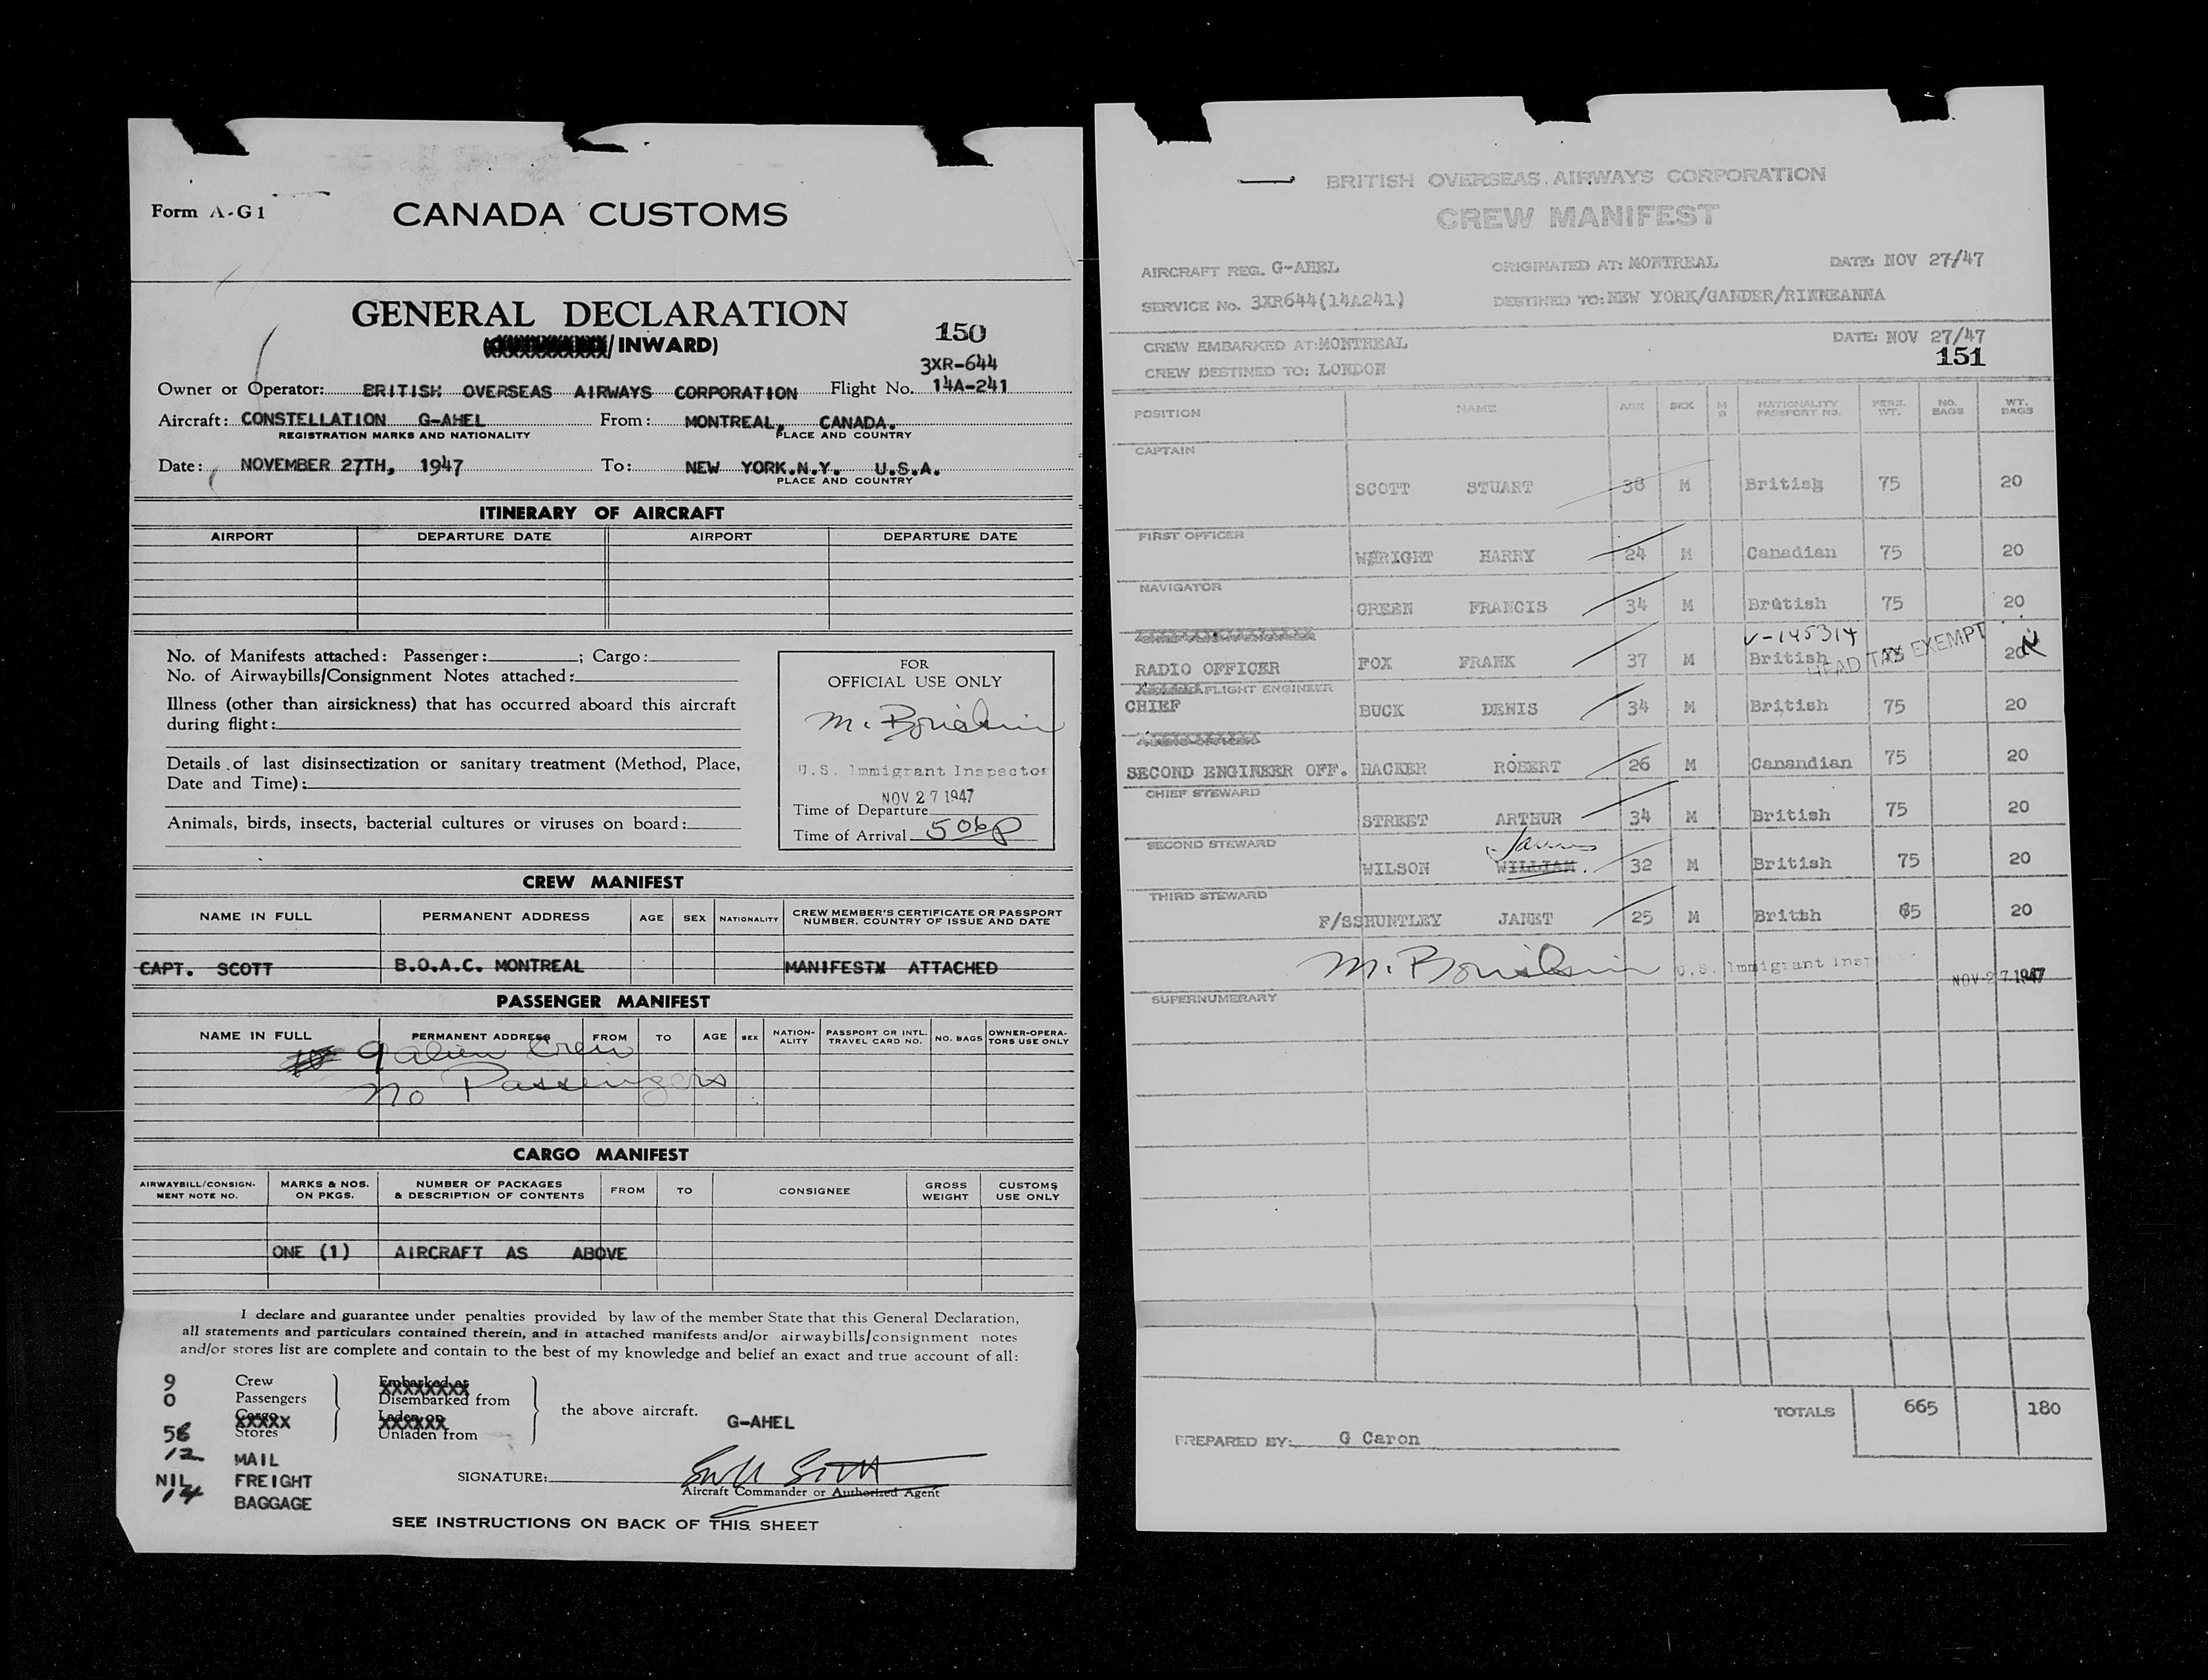 Form A-G1
CANADA CUSTOMS
GENERAL DECLARATION
/INWARD)
150
3XR-644
Owner or Operator: BRITISH OVERSEAS AIRWAYS CORPORATION Flight No. 14A-241
Aircraft: CONSTELLATION G-AHEL From: MONTREAL, CANADA.
REGISTRATION MARKS AND NATIONALITY PLACE AND COUNTRY
Date: NOVEMBER 27TH, 1947 To: NEW YORK.N.Y. U.S.A.
PLACE AND COUNTRY
ITINERARY OF AIRCRAFT
AIRPORT DEPARTURE DATE AIRPORT DEPARTURE DATE
No. of Manifests attached: Passenger: ; Cargo:
No. of Airwaybills/Consignment Notes attached:
Illness (other than airsickness) that has occurred aboard this aircraft
during flight:
Details of last disinsectization or sanitary treatment (Method, Place,
Date and Time):
Animals, birds, insects, bacterial cultures or viruses on board:
FOR
OFFICIAL USE ONLY
U.S. Immigrant Inspector
NOV 27 1947
Time of Departure
Time of Arrival 506p
CREW MANIFEST
NAME IN FULL PERMANENT ADDRESS AGE SEX NATIONALITY CREW MEMBER'S CERTIFICATE OR PASSPORT
NUMBER, COUNTRY OF ISSUE AND DATE
CAPT. SCOTT B.O.A.C. MONTREAL MANIFESTX ATTACHED
PASSENGER MANIFEST
NAME IN FULL PERMANENT ADDRESS FROM TO AGE SEX NATION-
ALITY PASSPORT OR INTL.
TRAVEL CARD NO. NO. BAGS OWNER-OPERA-
TORS USE ONLY
9 alien Crew
No Passengers
CARGO MANIFEST
AIRWAYBILL/CONSIGN-
MENT NOTE NO. MARKS & NOS.
ON PKGS. NUMBER OF PACKAGES
& DESCRIPTION OF CONTENTS FROM TO CONSIGNEE GROSS
WEIGHT CUSTOMS
USE ONLY
ONE (1) AIRCRAFT AS ABOVE
I declare and guarantee under penalties provided by law of the member State that this General Declaration,
all statements and particulars contained therein, and in attached manifests and/or airwaybills/consignment notes
and/or stores list are complete and contain to the best of my knowledge and belief an exact and true account of all:
9 Crew Embarked at
0 Passengers Disembarked from
Cargo Laden on the above aircraft. G-AHEL
Stores Unladen from
12 MAIL
NIL FREIGHT
14 BAGGAGE
SIGNATURE:
Aircraft Commander or Authorized Agent
SEE INSTRUCTIONS ON BACK OF THIS SHEET
BRITISH OVERSEAS AIRWAYS CORPORATION
CREW MANIFEST
AIRCRAFT REG. G-AHEL ORIGINATED AT: MONTREAL DATE: NOV 27/47
SERVICE No. 3XR644(14A241) DESTINED TO: NEW YORK/GANDER/RINNEANNA
CREW EMBARKED AT: MONTREAL DATE: NOV 27/47
151
CREW DESTINED TO: LONDON
POSITION NAME AGE SEX M
S NATIONALITY
PASSPORT NO. PERS.
WT. NO.
BAGS WT.
BAGS
CAPTAIN
SCOTT STUART 38 M British 75 20
FIRST OFFICER
WRIGHT HARRY 24 M Canadian 75 20
NAVIGATOR
GREEN FRANCIS 34 M Brutish 75 20
V-145314
HEAD TAX EXEMPT
RADIO OFFICER FOX FRANK 37 M British 75 20
FLIGHT ENGINEER
CHIEF BUCK DENIS 34 M British 75 20
SECOND ENGINEER OFF. HACKER ROBERT 26 M Canandian 75 20
CHIEF STEWARD
STREET ARTHUR 34 M British 75 20
James
SECOND STEWARD
WILSON WILLIAM. 32 M British 75 20
THIRD STEWARD
F/SSHUNTLEY JANET 25 M Britsh 65 20
U.S. Immigrant Insp
NOV 27 1947
SUPERNUMERARY
TOTALS 665 180
PREPARED BY: G Caron